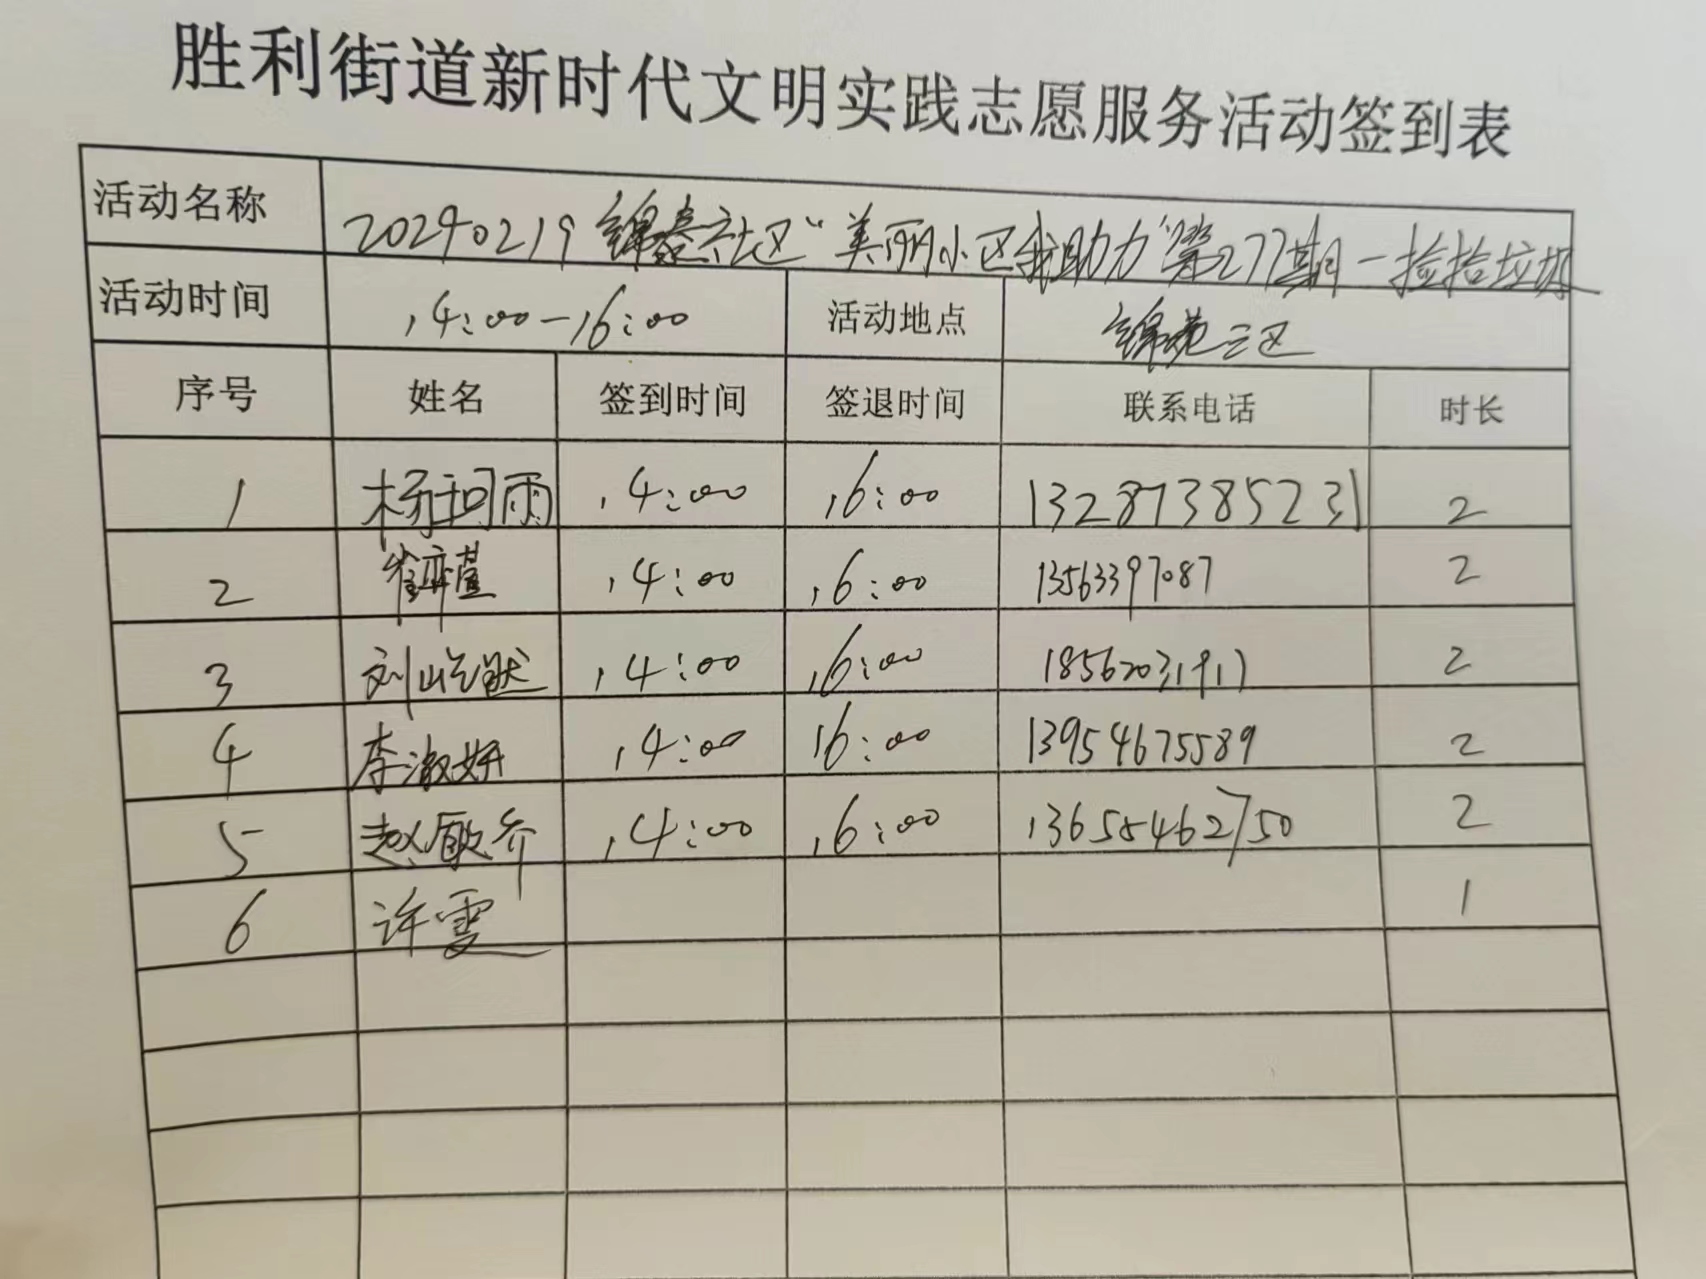 胜利街道新时代文明实践志愿服务活动签到表
活动名称 20240219 锦春社区“美丽小区我助力”第277期-捡拾垃圾
活动时间 14:00-16:00 活动地点 锦苑三区
序号 姓名 签到时间 签退时间 联系电话 时长
1 杨珂雨 14:00 16:00 13287385231 2
2 14:00 16:00 13563397087 2
3 刘屹然 14:00 16:00 18562031917 2
4 李淑妍 14:00 16:00 13954675589 2
5 14:00 16:00 13655462750 2
6 许雯 1